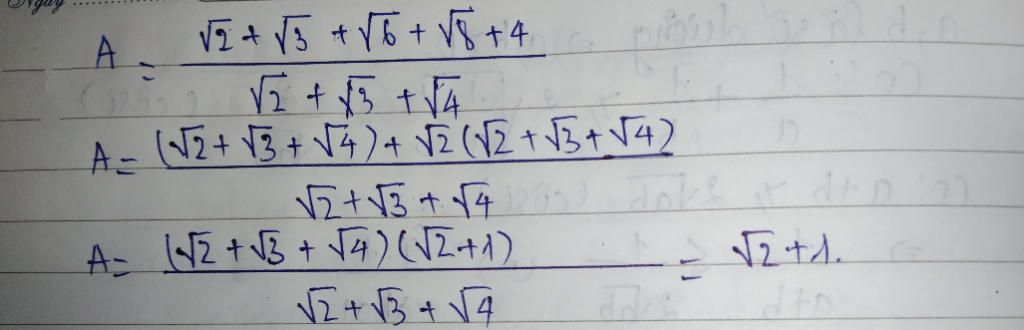 Ngày
A = \frac{\sqrt{2} + \sqrt{3} + \sqrt{6} + \sqrt{8} + 4}{\sqrt{2} + \sqrt{3} + \sqrt{4}}
A = \frac{(\sqrt{2} + \sqrt{3} + \sqrt{4}) + \sqrt{2}(\sqrt{2} + \sqrt{3} + \sqrt{4})}{\sqrt{2} + \sqrt{3} + \sqrt{4}}
A = \frac{(\sqrt{2} + \sqrt{3} + \sqrt{4})(\sqrt{2} + 1)}{\sqrt{2} + \sqrt{3} + \sqrt{4}} = \sqrt{2} + 1.